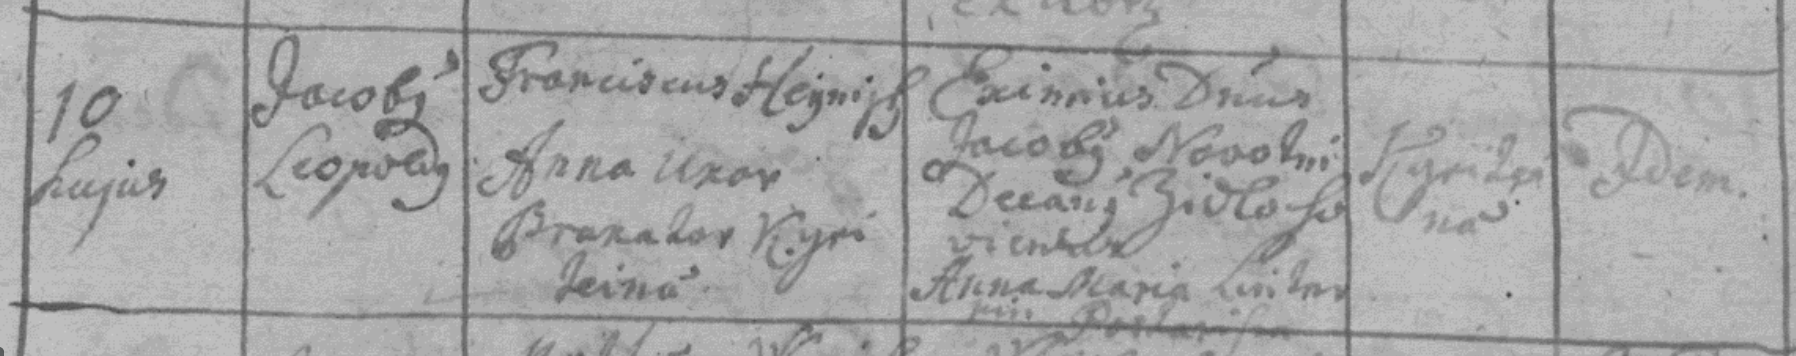 10
hujus
Jacobꝯ
Leopoldꝯ
Franciscus Heyniß
Anna Uxor
Braxator Kyri
teinā
Eximius Dnus
Jacobꝯ Novotni
Decanꝯ Zidlocho
viensis
Anna Maria
Kyritei
nā
Idem.